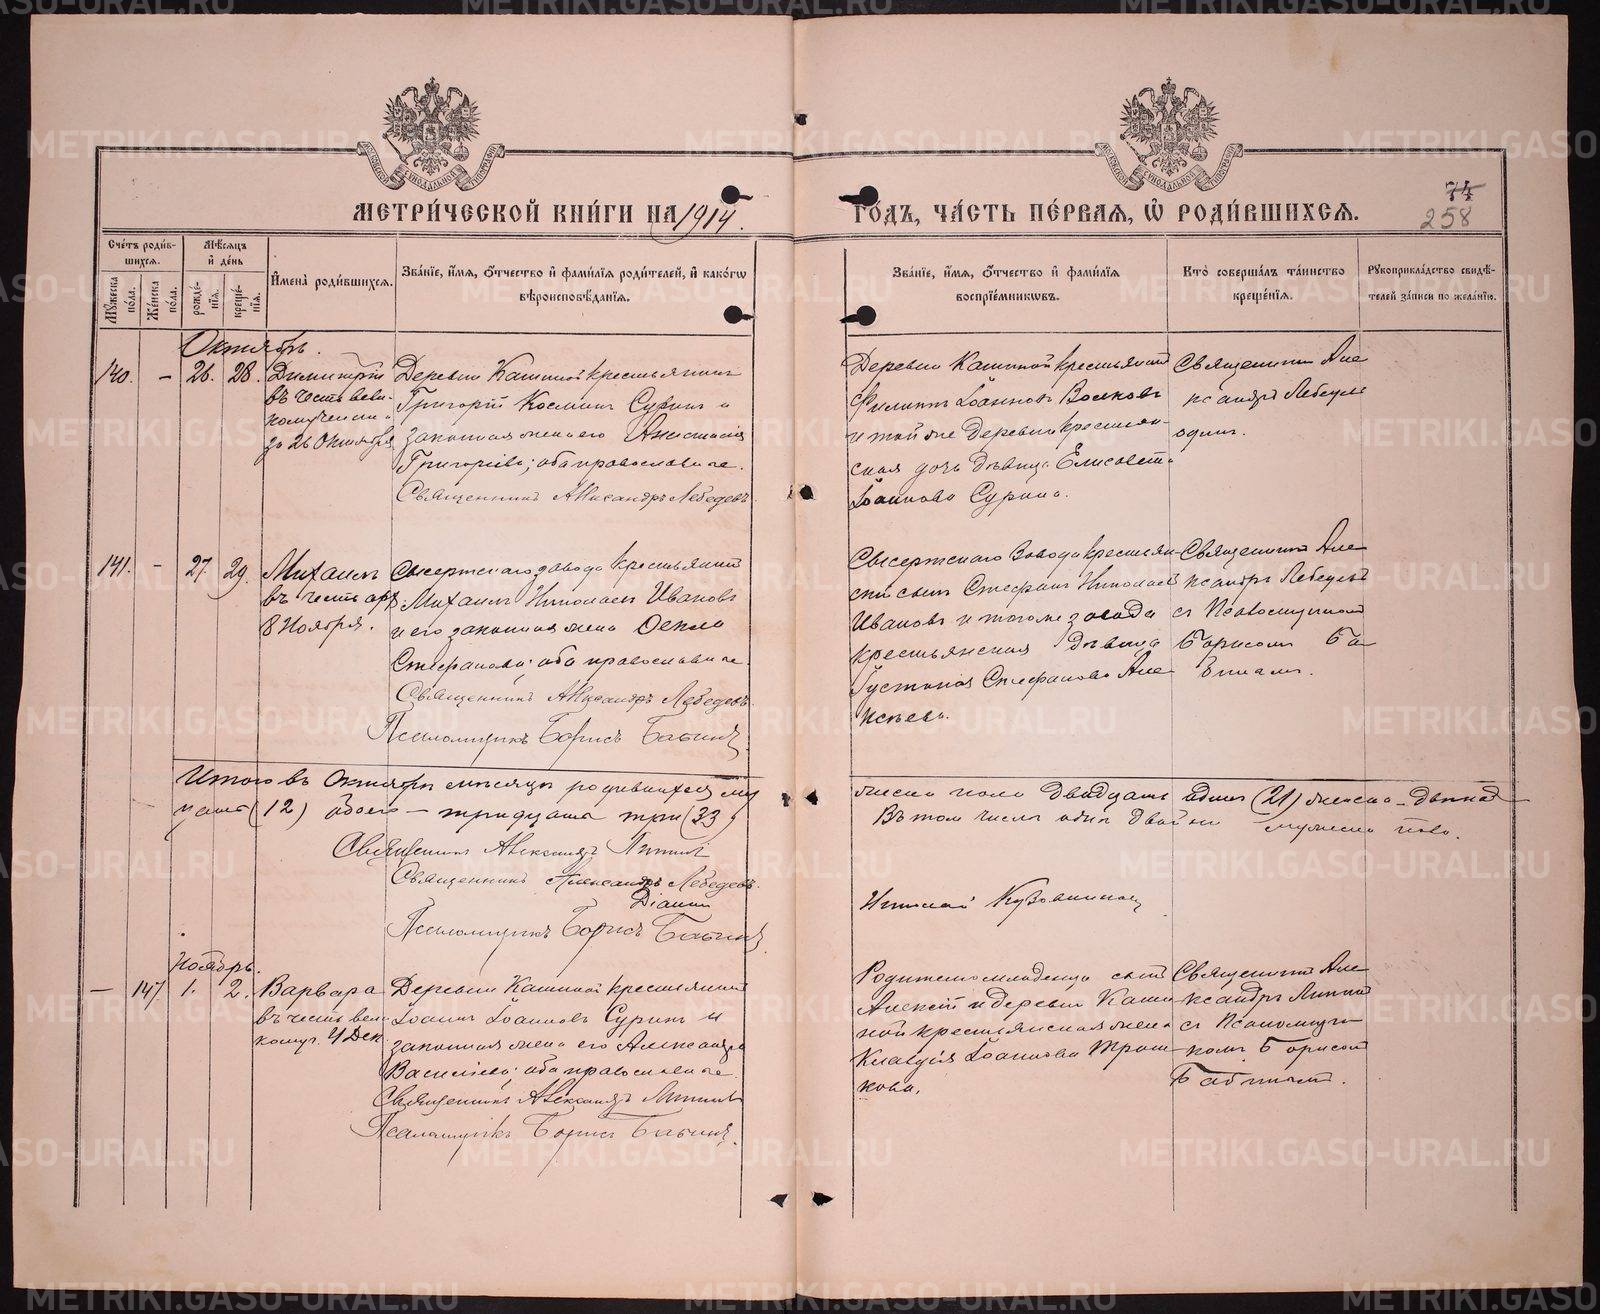 МЕТРИ́ЧЕСКОЙ КНИ́ГИ НА 1914.
ГО́ДЪ, ЧА́СТЬ ПЕ́РВАЯ, Ѡ РОДИ́ВШИХСЯ.
74
258
Сче́тъ роди́вшихся.
Мѣ́сяцъ и́ де́нь
Му́жеска по́ла.
Же́нска по́ла.
рожде́нїя.
креще́нїя.
И҆мена̀ роди́вшихся.
Зва́нїе, и҆́мя, о҆́тчество и҆ фами́лїя роди́телей, и҆ како́гѡ
вѣроисповѣ́данїя.
Зва́нїе, и҆́мя, о҆́тчество и҆ фами́лїя
воспрїе́мниковъ.
Кто̀ соверша́лъ та́инство
креще́нїя.
Рукоприкла́дство свидѣ́-
телей за́писи по жела́нїю.
Октябрь.
140. - 26. 28. Димитрій
въ честь вели-
комученика
за 26 Октября
Деревни Кашиной крестьянинъ
Григорій Космин Суринъ и
законная жена его Анастасія
Григорьева; оба православные.
Священникъ Александръ Лебедевъ.
Деревни Кашиной крестьянинъ
Филиппъ Іоанновъ Волковъ
и той же деревни крестьян-
ская дочь девица Елисавета
Іоаннова Сурина.
Священникъ Але
ксандръ Лебедев
одинъ.
141. - 27. 29. Михаилъ
въ честь арх
8 Ноября.
Сысертскаго завода крестьянинъ
Михаилъ Николаевъ Ивановъ
и его законная жена Фекла
Стефанова; оба православные.
Священникъ Александръ Лебедевъ.
Псаломщикъ Борисъ Бабинъ
Сысертскаго Завода крестьян-
скій сынъ Стефанъ Николаевъ
Ивановъ и того же завода
крестьянская девица
Густинія Стефанова Але
ксѣева.
Священникъ Але
ксандръ Лебедевъ
съ Псаломщикомъ
Борисомъ Ба
бинымъ.
Итого въ Октябрѣ мѣсяцѣ родившихся му
жеска пола двадцать одинъ (21) женска - двенад
цать (12) обоего - тридцать три (33)
Въ том числѣ одна двойни мужеска пола.
Священникъ Александръ
Священникъ Александръ Лебедевъ.
Діаконъ
Николай
Псаломщикъ Борисъ Бабинъ
Ноябрь.
- 147 1. 2. Варвара
въ честь вел
комуч. 4 Дек.
Деревни Кашиной крестьянинъ
Іоаннъ Іоанновъ Суринъ и
законная жена его Александра
Василіева; оба православные.
Священникъ Александръ
Псаломщикъ Борисъ Бабинъ.
Родителей младенца сынъ
Алексій и деревни Каши
ной крестьянская жена
Клавдія Іоаннова Трош
кова.
Священникъ Але
ксандръ
съ Псаломщи-
комъ Борисомъ
Бабинымъ.
METRIKI.GASO-URAL.RU